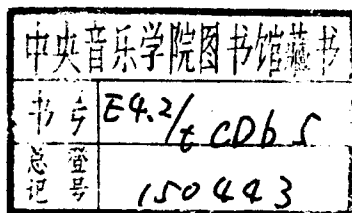 中央音乐学院图书馆藏书
书号 E4.2/t CDb5
总登记号 150443